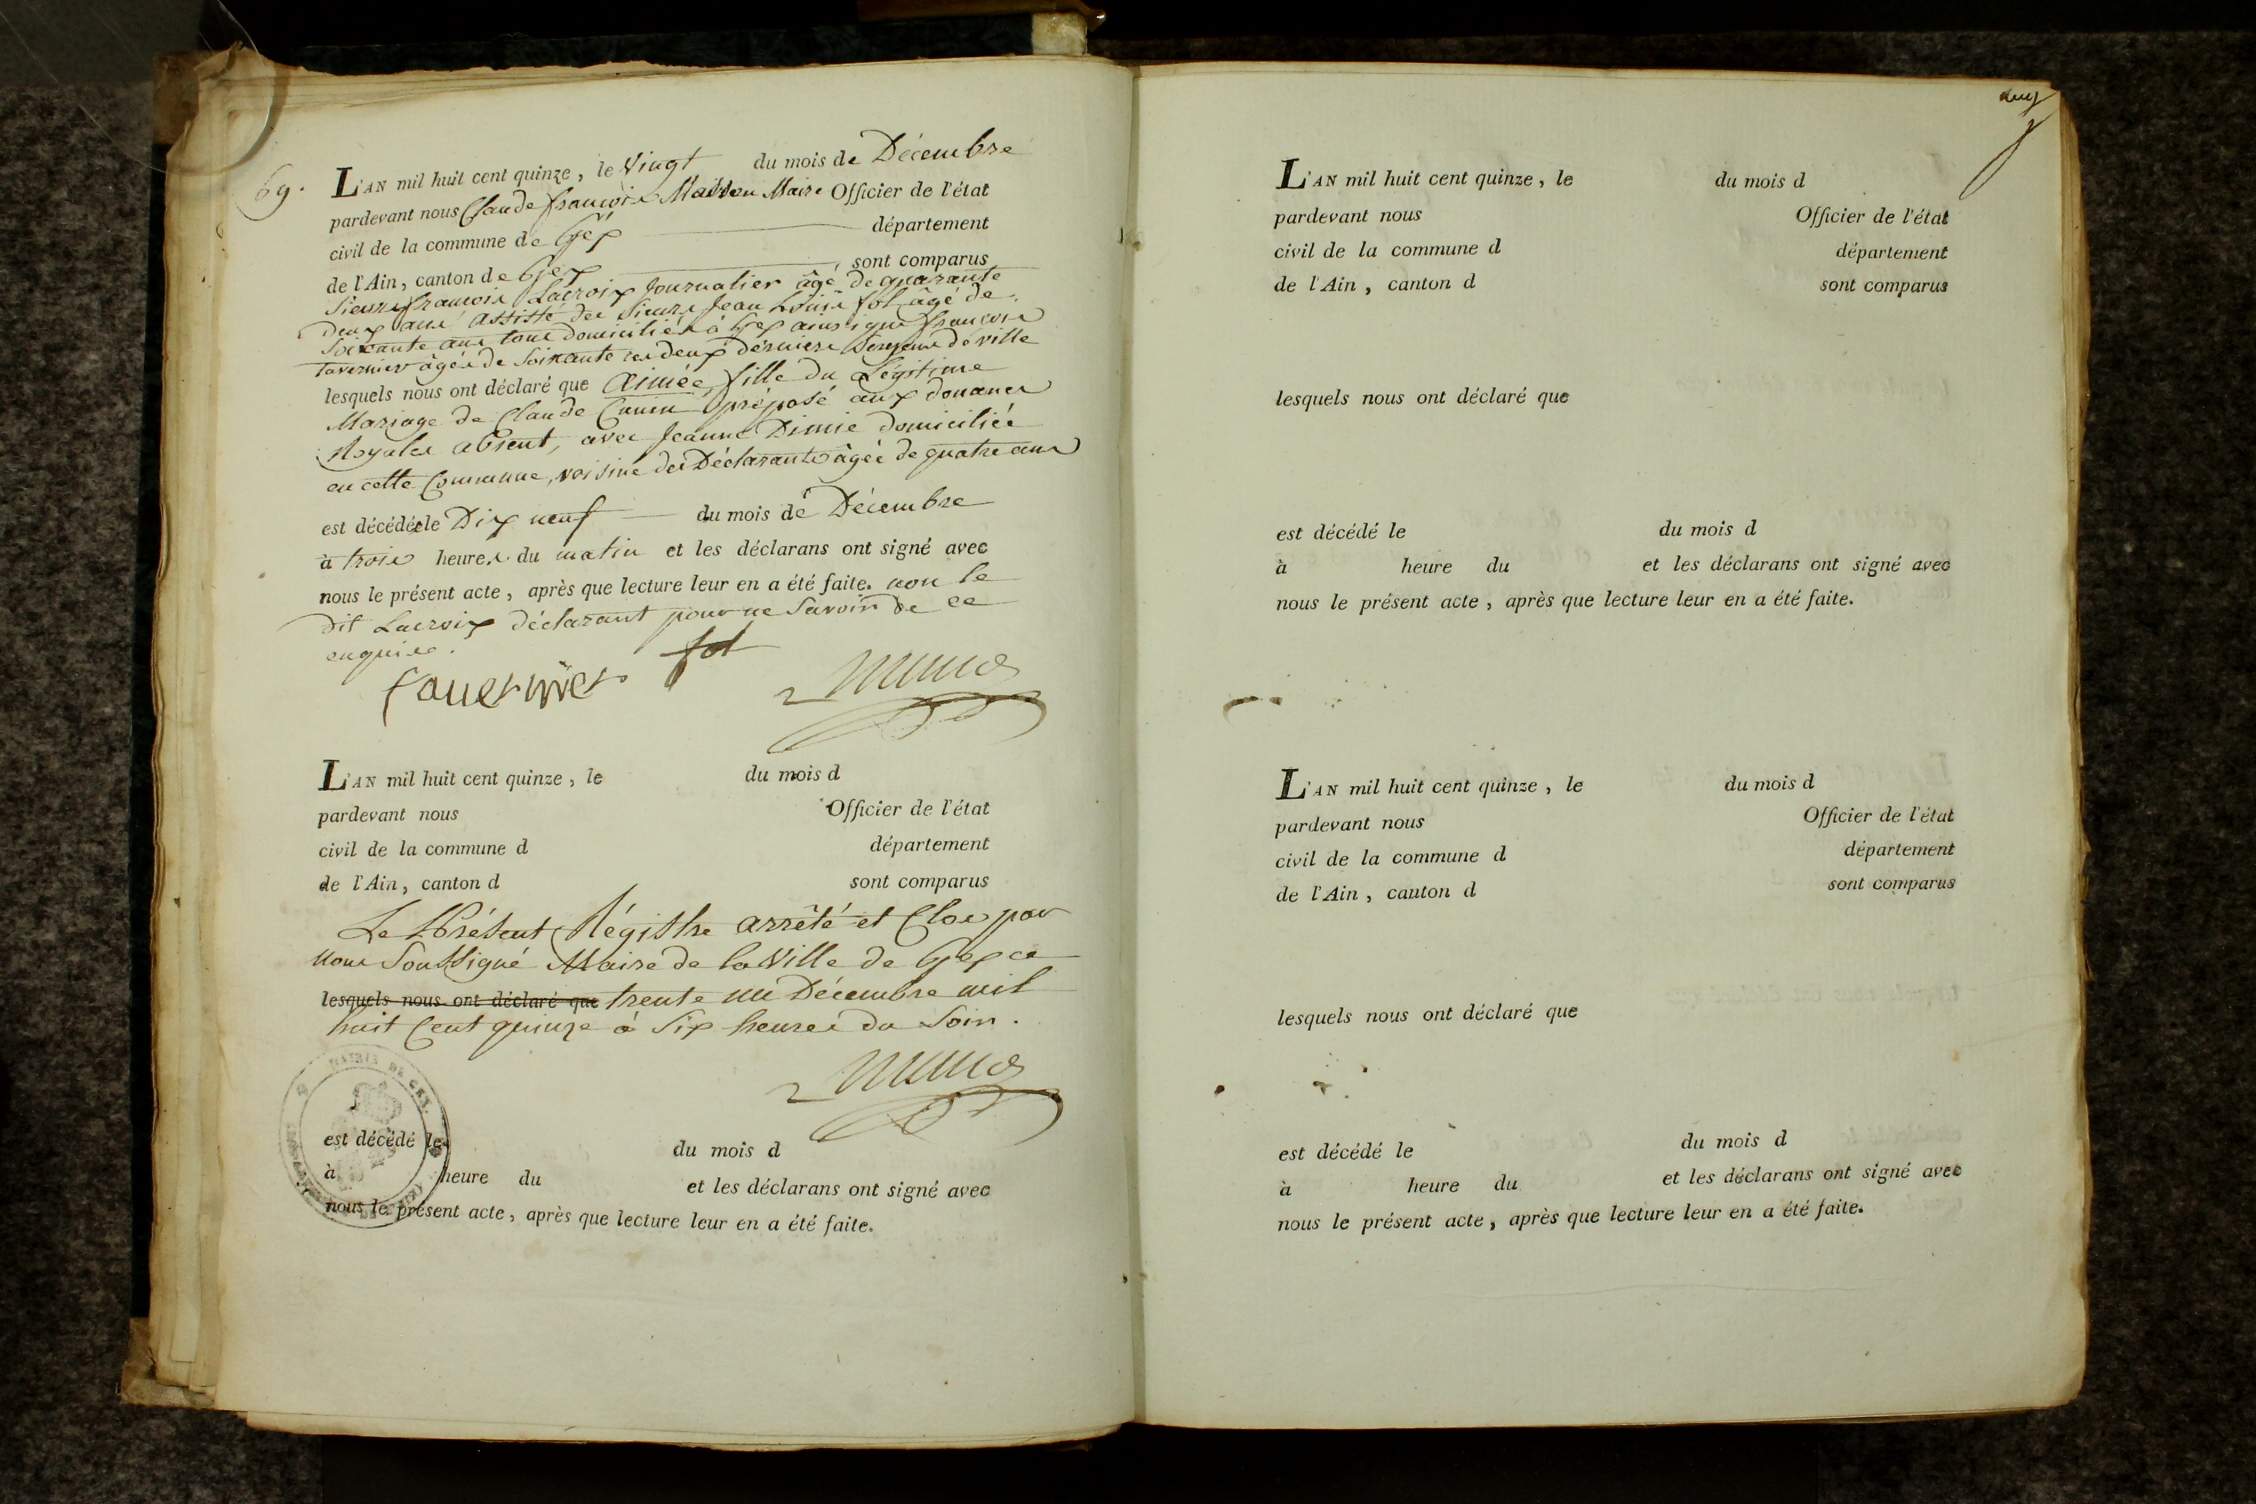 69.
L'AN mil huit cent quinze, le Vingt du mois de Décembre
pardevant nous Claude françois Maire Officier de l'état
civil de la commune de Gex département
de l'Ain, canton de Gex, sont comparus
Sieurs françois Lacroix Journalier âgé de quarante
Deux ans assisté des Sieurs Jean Louis fol âgé de
Soixante ans tous domiciliés à Gex ainsi que françois
Tavernier âgée de Soixante les deux derniers Sergens de ville
lesquels nous ont déclaré que Aimée, fille du Légitime
Mariage de Claude Cunin préposé aux douanes
Royales absent, avec Jeanne Dimie domiciliée
en cette Commune, voisine des Déclarants âgée de quatre ans
est décédée le Dix neuf du mois de Décembre
à trois heures du matin et les déclarans ont signé avec
nous le présent acte, après que lecture leur en a été faite. non le
dit Lacroix déclarant pour ne Savoir de ce
enquise.
fol
tauernier
L'AN mil huit cent quinze, le du mois d
pardevant nous Officier de l'état
civil de la commune d département
de l'Ain, canton d sont comparus
Le Présent Régistre arrêté et Clos par
nous Soussigné Maire de la Ville de Gex ce
lesquels nous ont déclaré que trente un Décembre mil
huit Cent quinze à Six heures du Soir.
MAIRIE DE GEX.
est décédé le du mois d
à heure du et les déclarans ont signé avec
nous le présent acte, après que lecture leur en a été faite.
L'AN mil huit cent quinze, le du mois d
pardevant nous Officier de l'état
civil de la commune d département
de l'Ain, canton d sont comparus
lesquels nous ont déclaré que
est décédé le du mois d
à heure du et les déclarans ont signé avec
nous le présent acte, après que lecture leur en a été faite.
L'AN mil huit cent quinze, le du mois d
pardevant nous Officier de l'état
civil de la commune d département
de l'Ain, canton d sont comparus
lesquels nous ont déclaré que
est décédé le du mois d
à heure du et les déclarans ont signé avec
nous le présent acte, après que lecture leur en a été faite.